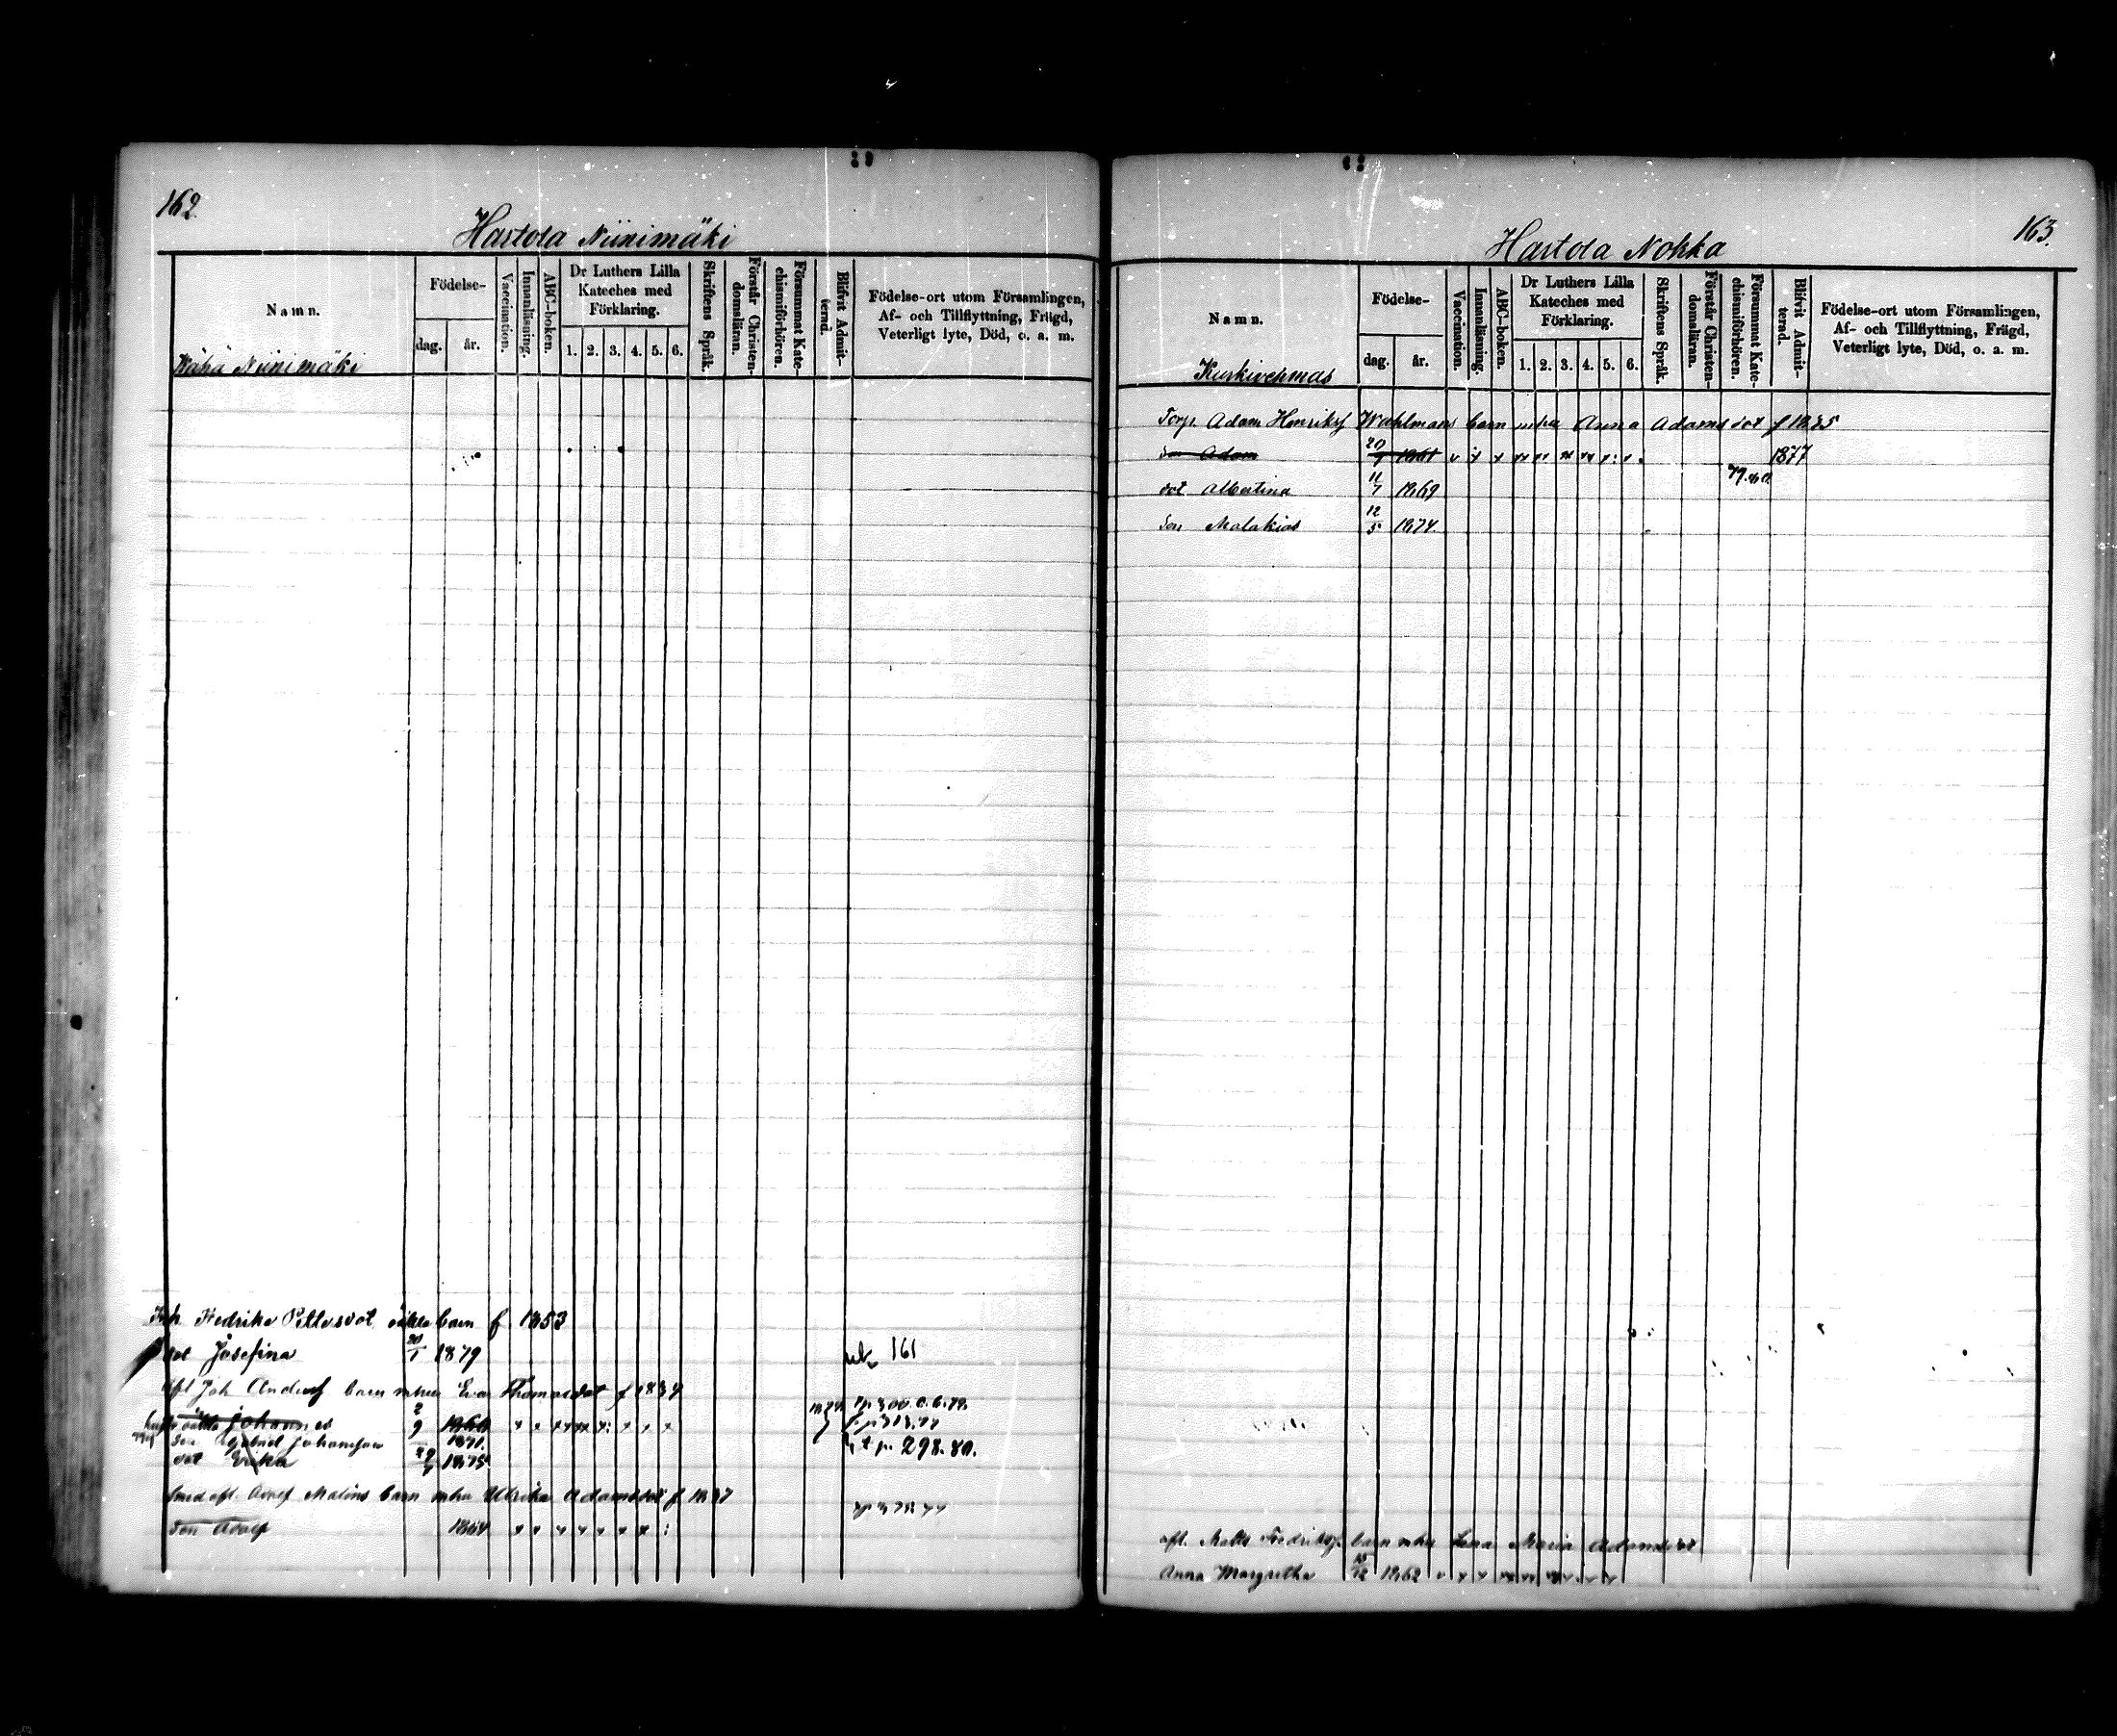 162.
Hartola Niinimäki
Namn.
Födelse-
dag. år.
Vaccination.
Innanläsning.
ABC-boken.
Dr Luthers Lilla Kateches med Förklaring.
1. 2. 3. 4. 5. 6.
Skriftens Språk.
Förstår Christendomsläran.
Försummat Katechismiförhören.
Blifvit Admitterad.
Födelse-ort utom Församlingen,
Af- och Tillflyttning, Frägd,
Veterligt lyte, Död, o. a. m.
Wähä Niinimäki
Fredrika Pettersdot oäkta barn f 1853
dot Josefina 20/1 1879 161
Joh Andersf barn mhu Eva Thomasdot f 1834
oäkta Johannes 2/9 1860
son Gabriel Johansson 1871 p. 298.80.
dot Erika 29 1875
Smed afl. Adolf Malins barn mhu Ulrika Adamsdot f 1837
Son Adolf 1864
163.
Hartola Nokka
Namn.
Födelse-
dag. år.
Vaccination.
Innanläsning.
ABC-boken.
Dr Luthers Lilla Kateches med Förklaring.
1. 2. 3. 4. 5. 6.
Skriftens Språk.
Förstår Christendomsläran.
Försummat Katechismiförhören.
Blifvit Admitterad.
Födelse-ort utom Församlingen,
Af- och Tillflyttning, Frägd,
Veterligt lyte, Död, o. a. m.
Kurkivehmas
Torp. Adam Henriksf Wahlmans barn mhu Anna Adamsdot f 1835
Son Adam 20/9 1861 1877
dot Albertina 11/7 1869 79.80
Son Malakias 12/5 1874.
afl. Matts Fredriksf. barn mhu Lena Maria Adamsdot
Anna Margretha 15/12 1862